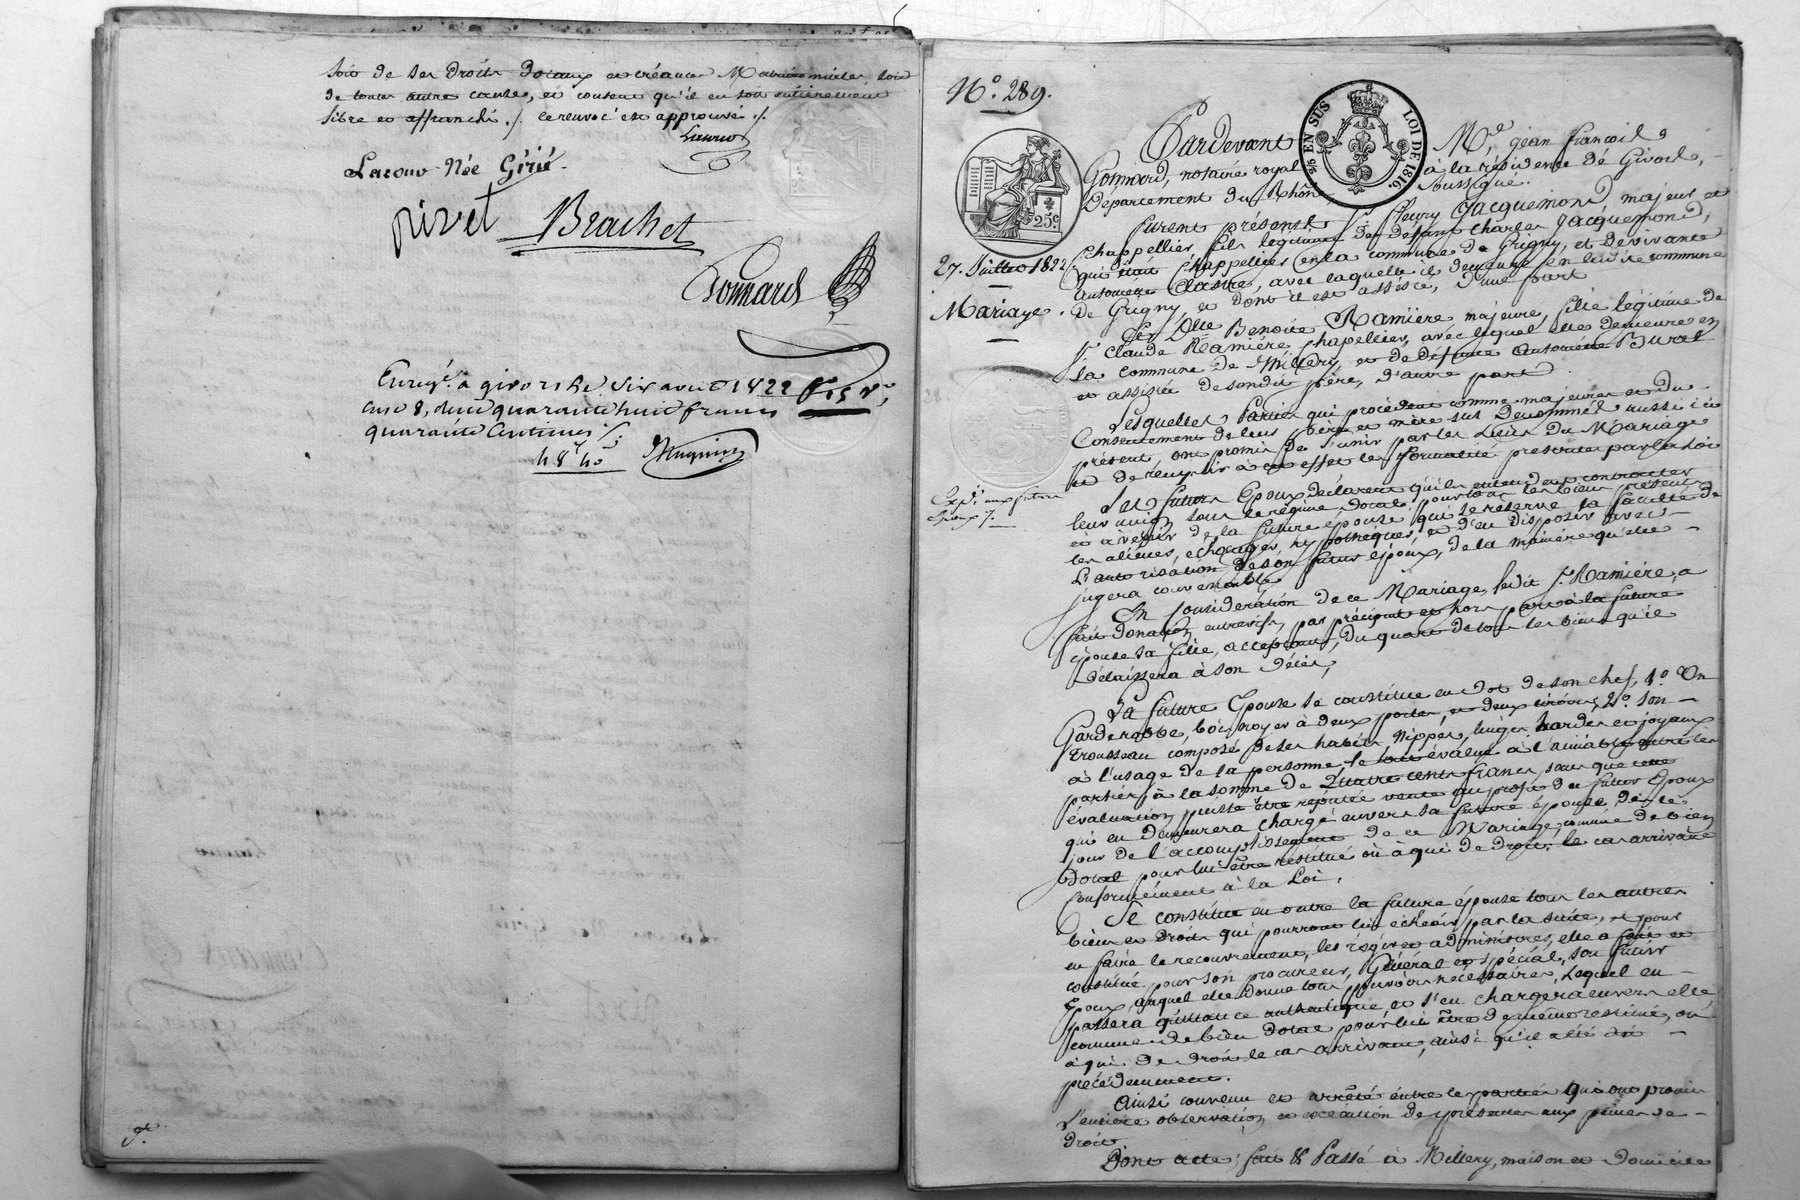 soit de ses Droits Dotaux et créances Matrimoniales soit
de toutes autres causes, et consent qu'il en soit entièrement
libre et affranchi ./. le renvoi est approuvé ./.
Lacour
Lacour Née Girié
pivet Brachet
Gonnard
Enregé. à givors le six aout 1822 fo 15 vo,
case 8, reçu quarante huit francs
quarante Centimes ./.
48f 40
No. 289.
25 EN SUS LOI DE 1816.
25c
27. Juillet 1822
Mariage.
Expé. aux futurs
Epoux ./.
Pardevant Me. jean françois
Gonnard, notaire royal à la résidence de Givors,
Département du Rhône soussigné.
furent présents Sr. fleury Jacquemond, majeur et
Chappellier, fils légitime de defunt Charles Jacquemond,
qui était Chappellier en la commune de Grigny, et de vivante
Antoinette Clastre, avec laquelle il demeure en ladite commune
de Grigny, et dont il est assisté, d'une part
Et Dlle Benoite Ramière majeure, fille légitime de
Sr. Claude Ramière chapellier, avec lequel elle demeure en
la commune de Millery, et de défunte Antoinette Buret
et assistée de son dit père, d'autre part
Lesquelles Parties qui procèdent comme majeures et du
Consentement de leurs père et mère sus dénommés aussi ici
présent, ont promis de s'unir par les Liens du Mariage
et de remplir à cet effet les formalités prescrites par la loi
Les futurs Epoux déclarent qu'ils entendent contracter
leur union sous le régime Dotal, pour tous les biens présents
et à venir de la future épouse qui se réserve la faculté de
les aliéner, échanger, hypothéquer, et d'en disposer avec
L'autorisation de son futur époux, de la manière qu'elle
jugera convenable
En Considération de ce Mariage, ledit Sr. Ramière, a
fait Donation entrevifs, par préciput et hors part à la future
épouse sa fille, acceptant, du quart de tous les biens qu'il
délaissera à son Décès,
La future Epouse se constitue en Dot de son chef, 1o. Un
Garderobbe, bois noyer à deux portes, et deux tiroirs, 2o. Son
Trousseau composé de ses habits, Nippes, linges hardes et joyaux
à l'usage de la personne, le tout évalué à l'amiable entre les
parties, à la somme de Quatre cents francs, sans que cette
évaluation puisse être réputée vente au profit du futur Epoux
qui en demeurera chargé envers sa future épouse, dès le
jour de l'accomplissement de ce Mariage, comme de bien
Dotal pour lui être restitué où à qui de droit, le cas arrivant
Conformément à la Loi,
Se constitue en outre la future épouse tous les autres
biens et droits qui pourront lui échéoir par la suite, et pour
en faire le recouvrement, les régir et administrer, elle a fait et
constitué pour son procureur, Général et spécial, son futur
Epoux auquel elle donne tous pouvoirs nécessaires, Lequel en
passera quittance authentique, et s'en chargera envers elle
comme de bien dotal pour lui être de même restitué, où
à qui de droit le cas arrivant, ainsi qu'il a été dit
précédemment.
Ainsi convenu et arrêté entre les parties qui ont promis
l'entière observation et exécution des présentes aux peines de
droit
Dont acte; fait & Passé à Millery, maison et Domicile